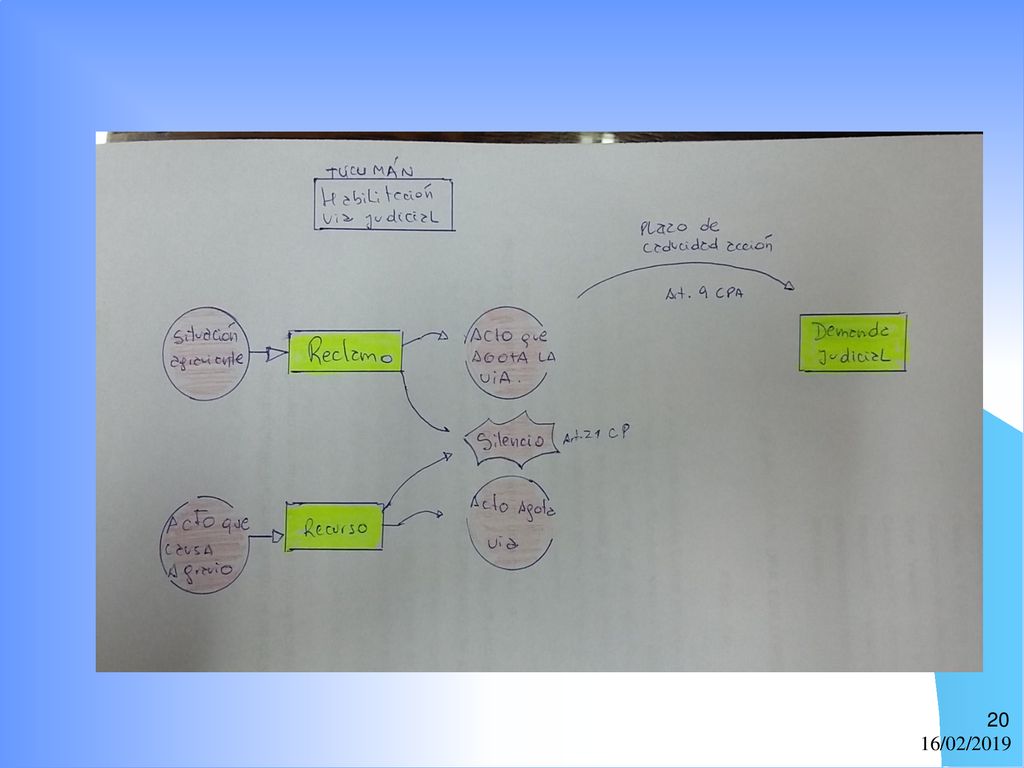 TUCUMÁN
Habilitación
via judicial
Plazo de
caducidad acción
Art. 9 CPA
Situación
agraviante
Reclamo
Acto que
AGOTA LA
VIA.
Demanda
Judicial
Silencio
Art. 21 CP
Acto que
causa
Agravio
Recurso
Acto Agota
via
20
16/02/2019